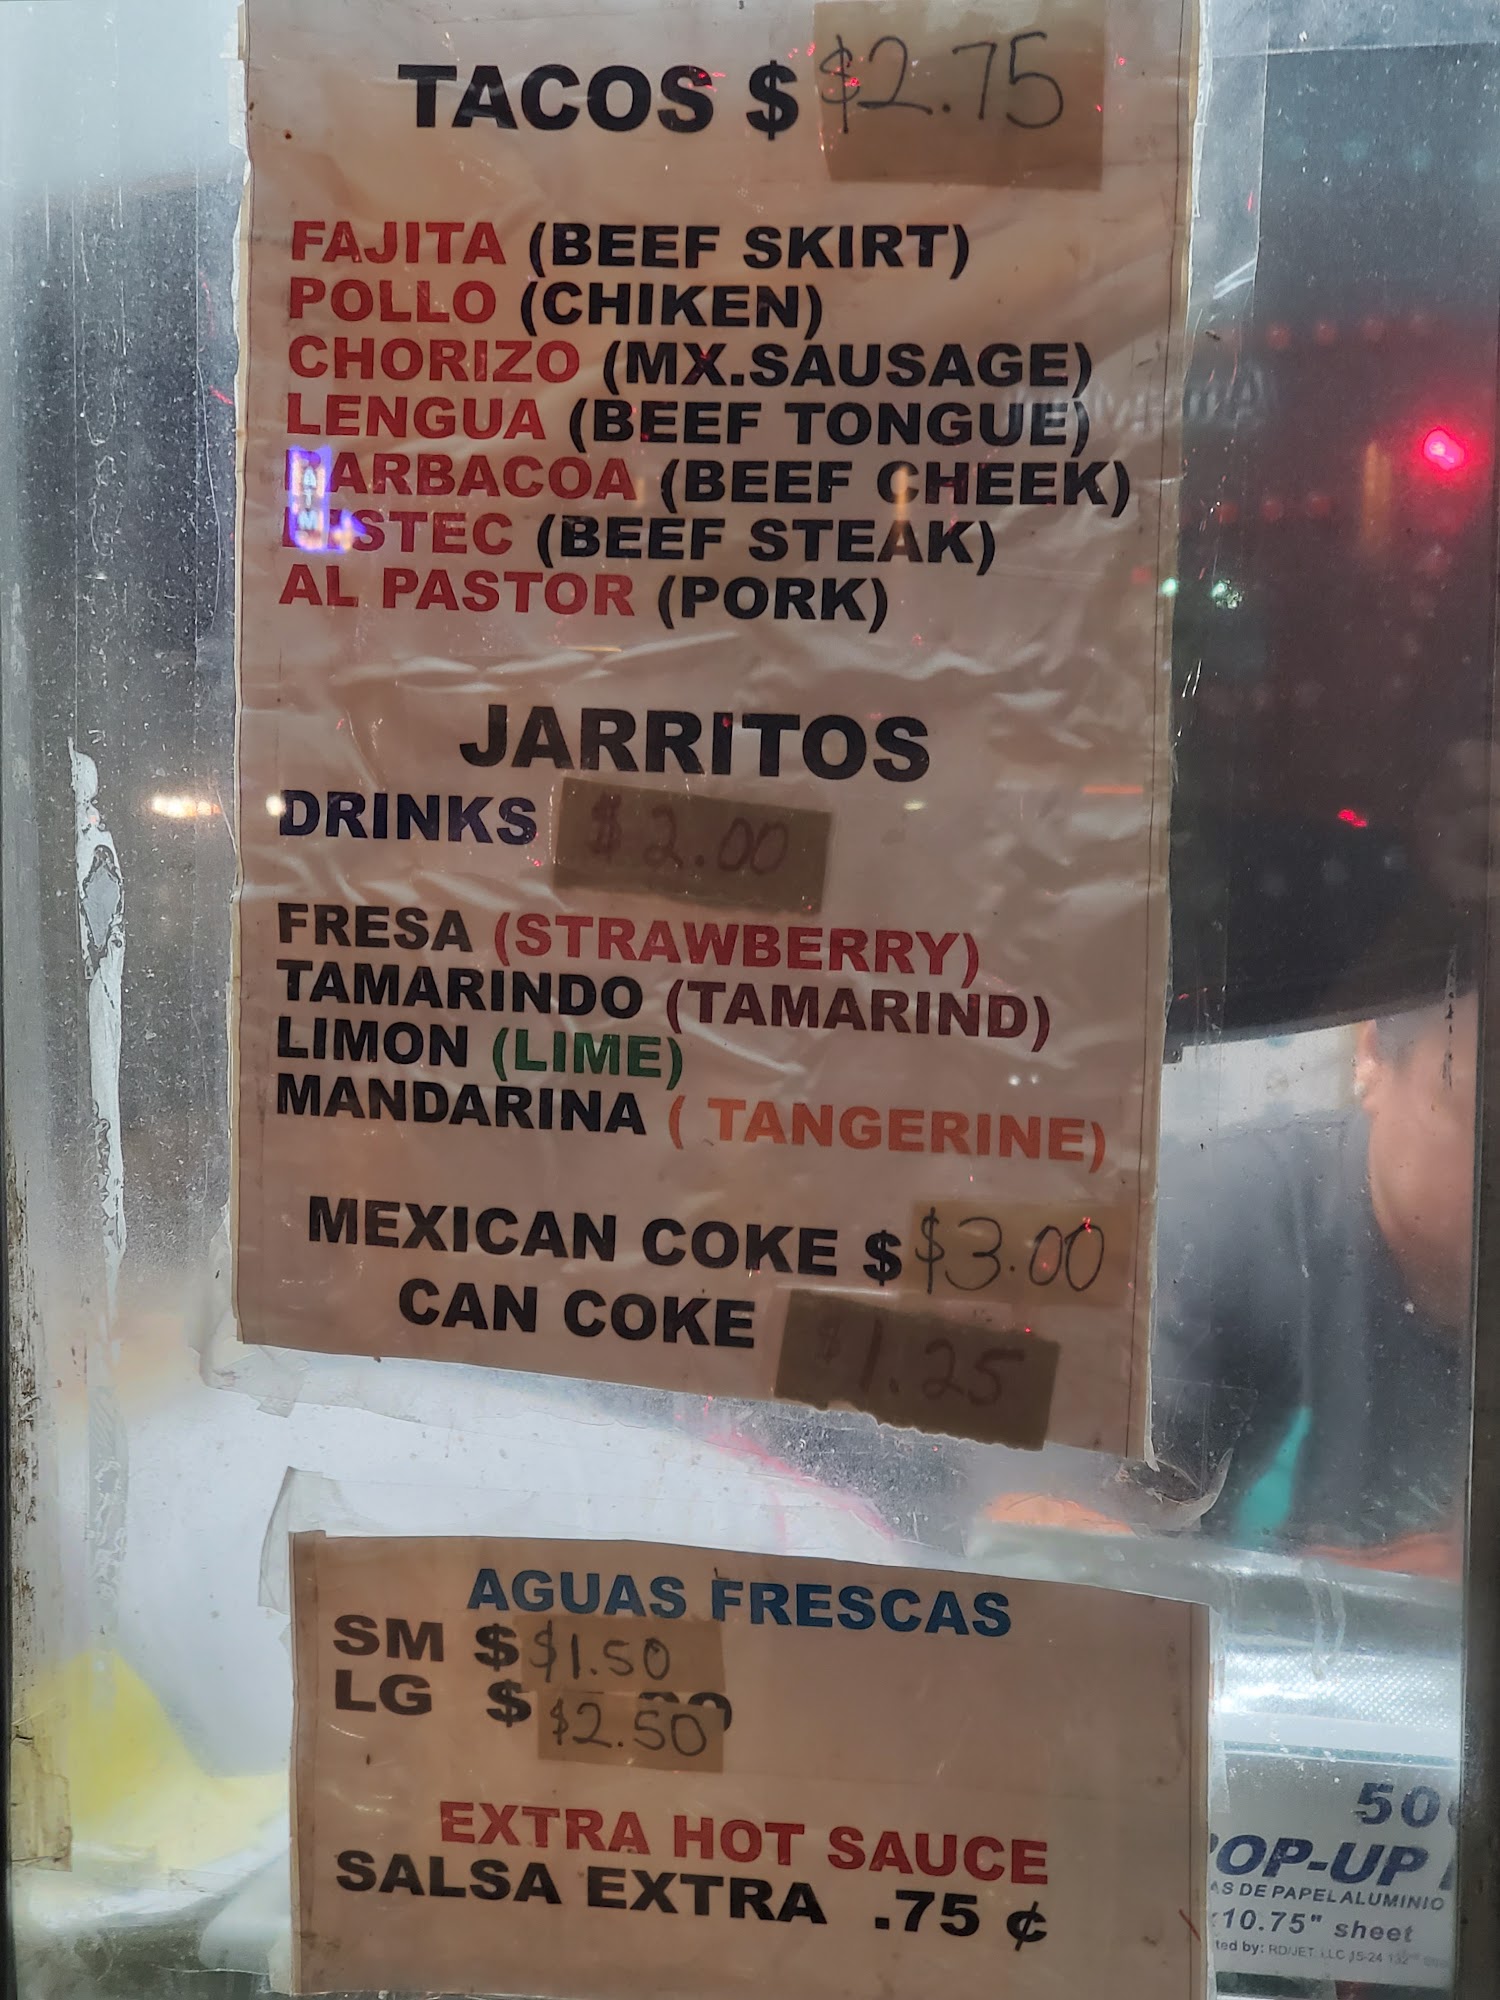 TACOS $ $2.75
FAJITA (BEEF SKIRT)
POLLO (CHIKEN)
CHORIZO (MX.SAUSAGE)
LENGUA (BEEF TONGUE)
BARBACOA (BEEF CHEEK)
BISTEC (BEEF STEAK)
AL PASTOR (PORK)
JARRITOS
DRINKS $2.00
FRESA (STRAWBERRY)
TAMARINDO (TAMARIND)
LIMON (LIME)
MANDARINA ( TANGERINE)
MEXICAN COKE $ $3.00
CAN COKE $1.25
AGUAS FRESCAS
SM $ $1.50
LG $ $2.50
EXTRA HOT SAUCE
SALSA EXTRA .75 ¢
ATM
50
POP-UP
AS DE PAPEL ALUMINIO
10.75" sheet
ted by: RD/JET, LLC 15-24